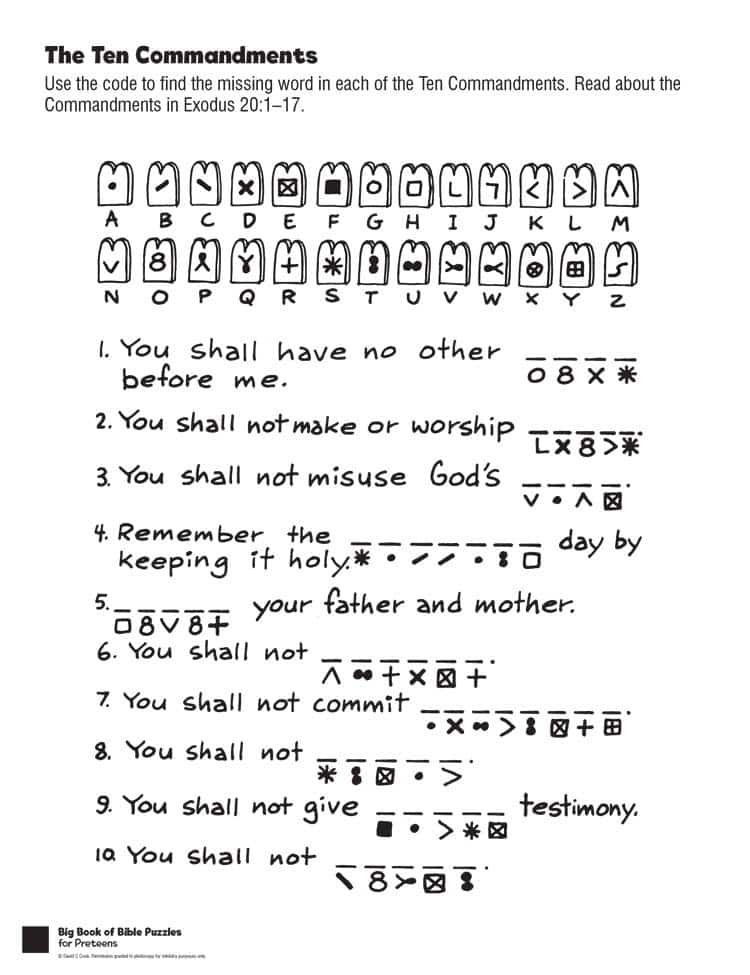 The Ten Commandments
Use the code to find the missing word in each of the Ten Commandments. Read about the
Commandments in Exodus 20:1–17.
A B C D E F G H I J K L M
N O P Q R S T U V W X Y Z
1. You shall have no other ____
before me.
2. You shall not make or worship _____.
3. You shall not misuse God's ____.
4. Remember the _______ day by
keeping it holy.
5. _____ your father and mother.
6. You shall not ______.
7. You shall not commit ________.
8. You shall not _____.
9. You shall not give _____ testimony.
10. You shall not _____.
Big Book of Bible Puzzles
for Preteens
© David C Cook. Permission granted to photocopy for ministry purposes only.